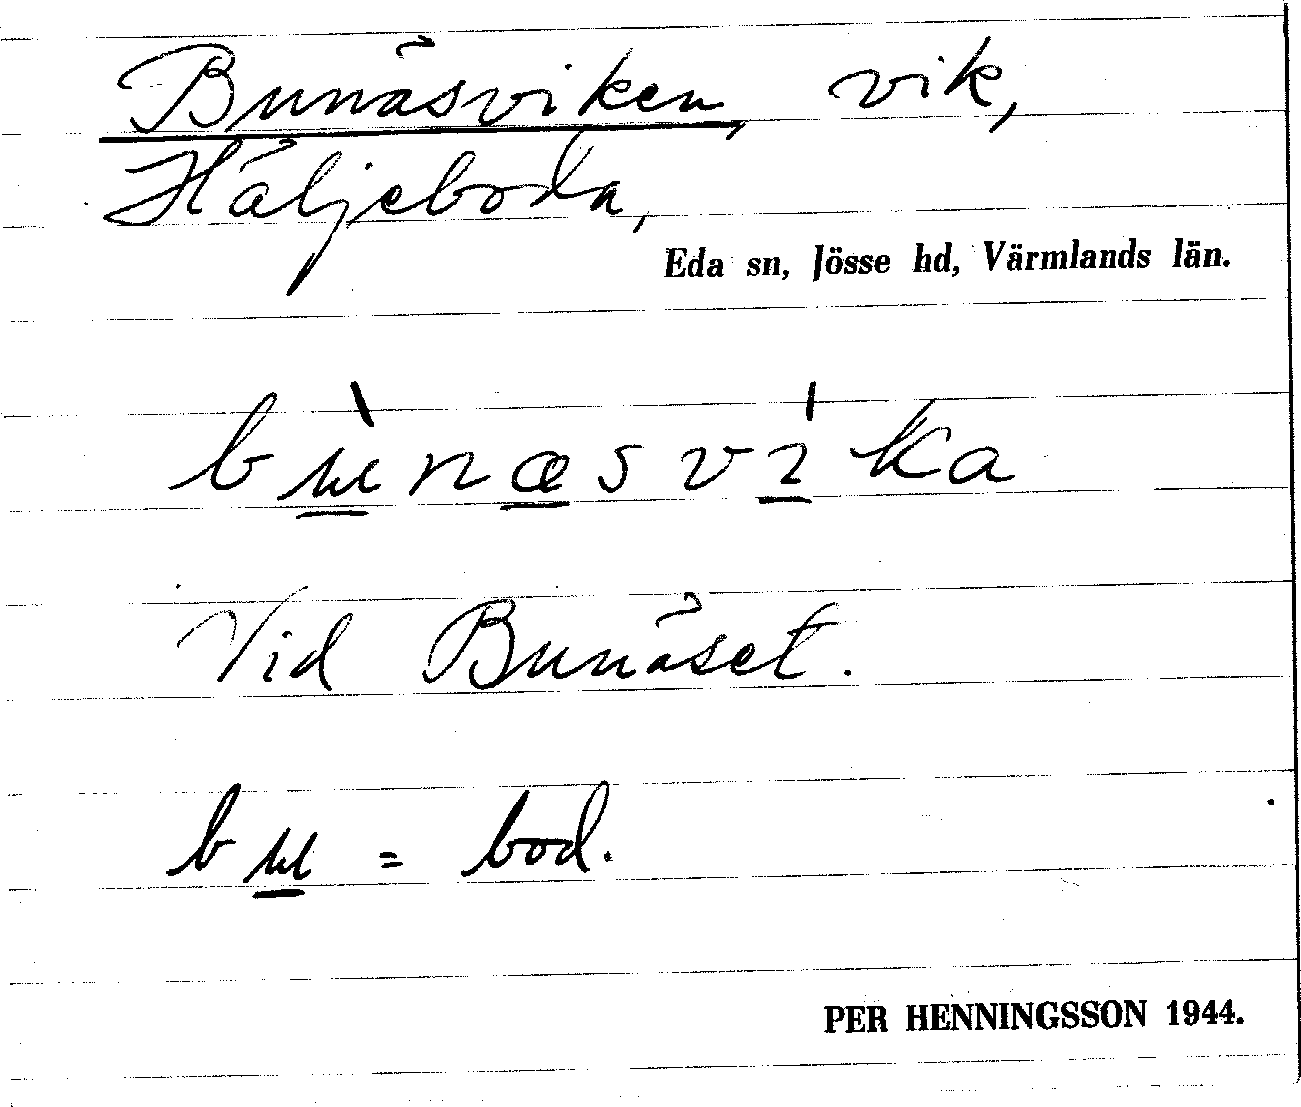 Bunäsviken, vik,
Häljeboda,
Eda sn, Jösse hd, Värmlands län.
bùnæsvíka
Vid Bunäset.
bu = bod.
PER HENNINGSSON 1944.